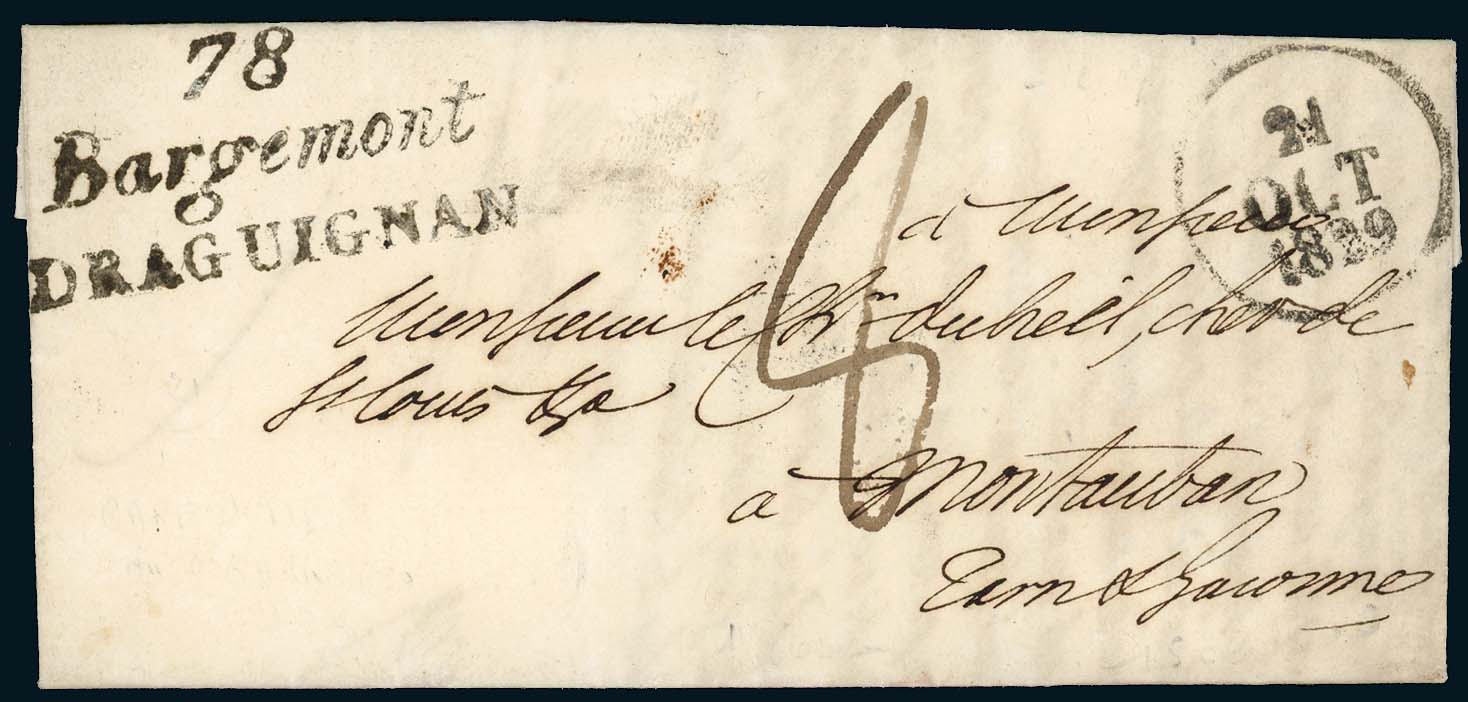 78
Bargemont
DRAGUIGNAN
21
OCT
1829
8
à Monsieur
Monsieur le Bon duheil, chev de
St Louis &a
à Montauban
Tarn & Garonne